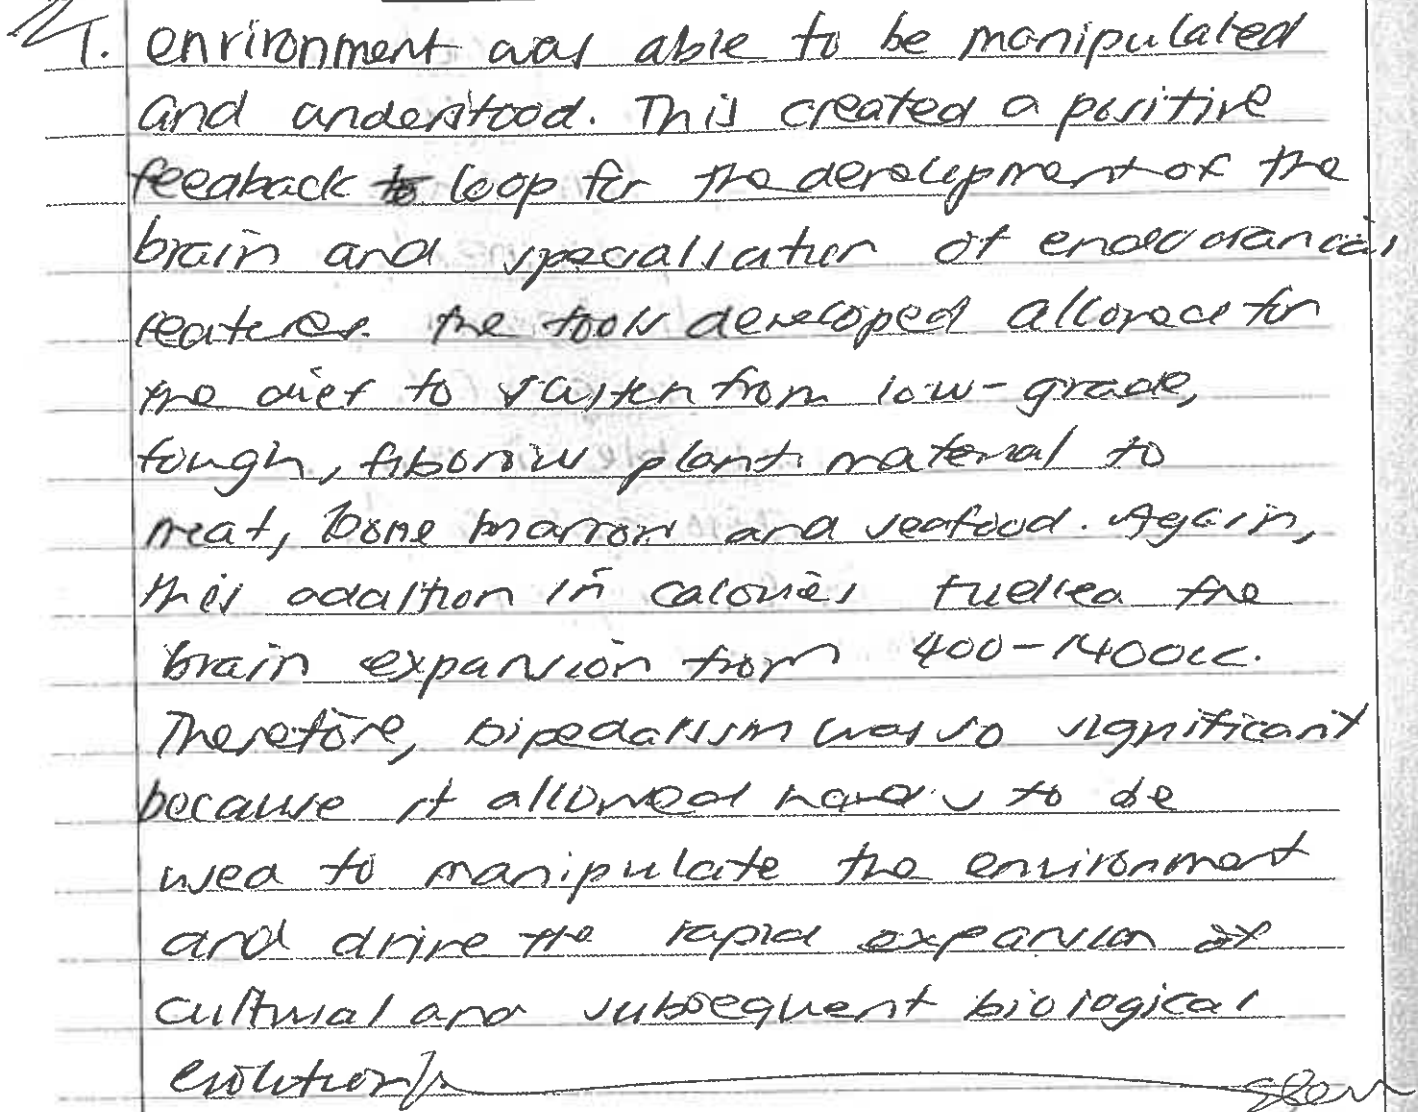 1. environment was able to be manipulated
and understood. This created a positive
feedback loop for the development of the
brain and specialisation of
features. The tools developed allowed for
the diet to from low-grade,
tough, plant material to
meat, bone marrow and seafood. Again,
this addition in calories fuelled the
brain expansion from 400-1400cc.
Therefore, bipedalism was so significant
because it allowed hands to be
used to manipulate the environment
and drive the rapid expansion of
cultural and subsequent biological
evolution